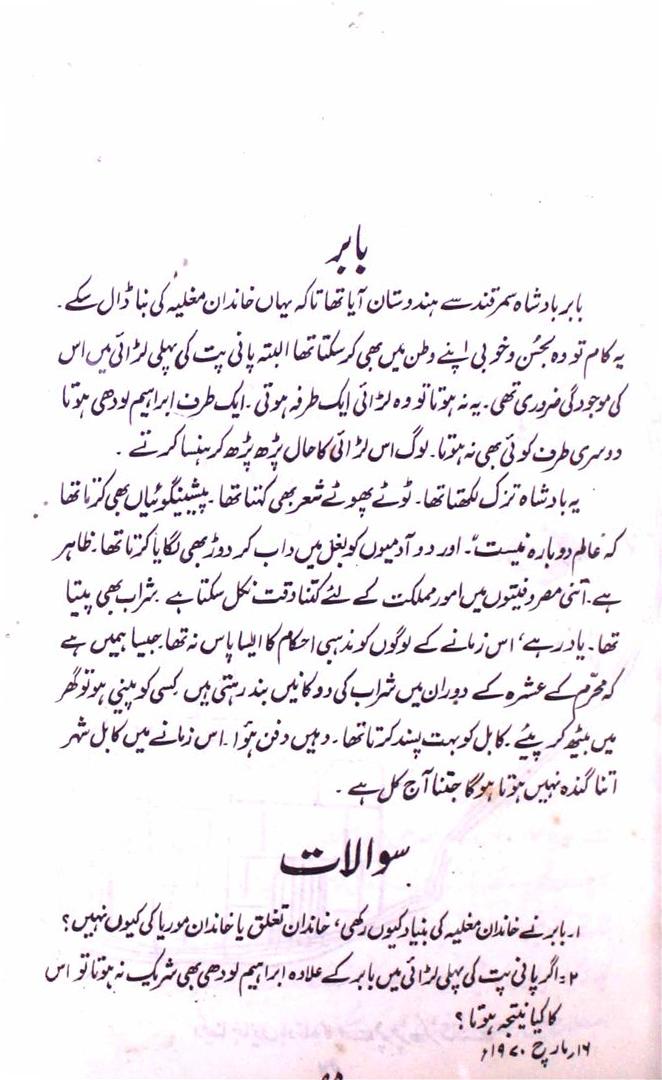 بابر
بابر بادشاہ سمرقند سے ہندوستان آیا تھا تاکہ یہاں خاندان مغلیہ کی بنا ڈال سکے۔
یہ کام تو وہ بحسُن و خوبی اپنے وطن میں بھی کر سکتا تھا البتہ پانی پت کی پہلی لڑائی میں اس
کی موجودگی ضروری تھی۔ یہ نہ ہوتا تو وہ لڑائی ایک طرفہ ہوتی۔ ایک طرف ابراہیم لودھی ہوتا
دوسری طرف کوئی بھی نہ ہوتا۔ لوگ اس لڑائی کا حال پڑھ پڑھ کر ہنسا کرتے۔
یہ بادشاہ تزک لکھتا تھا۔ ٹوٹے پھوٹے شعر بھی کہتا تھا۔ پیشینگوئیاں بھی کرتا تھا
کہ عالم دوبارہ نیست"۔ اور دو آدمیوں کو بغل میں داب کر دوڑ بھی لگایا کرتا تھا۔ ظاہر
ہے۔ اتنی مصروفیتوں میں امور مملکت کے لئے کتنا وقت نکل سکتا ہے۔ شراب بھی پیتا
تھا۔ یاد رہے، اس زمانے کے لوگوں کو مذہبی احکام کا ایسا پاس نہ تھا۔ جیسا ہمیں ہے
کہ محرّم کے عشرہ کے دوران میں شراب کی دوکانیں بند رہتی ہیں۔ کسی کو پینی ہو تو گھر
میں بیٹھ کر پیئے۔ کابل کو بہت پسند کرتا تھا۔ وہیں دفن ہؤا۔ اس زمانے میں کابل شہر
اتنا گندہ نہیں ہوتا ہوگا جتنا آج کل ہے۔
سوالات
۱۔ بابر نے خاندان مغلیہ کی بنیاد کیوں رکھی، خاندان تغلق یا خاندان موریا کی کیوں نہیں؟
۲۔ اگر پانی پت کی پہلی لڑائی میں بابر کے علادہ ابراہیم لودھی بھی شریک نہ ہوتا تو اس
کا کیا نیتجہ ہوتا؟
۱۶ر مارچ ۱۹۷۰ء